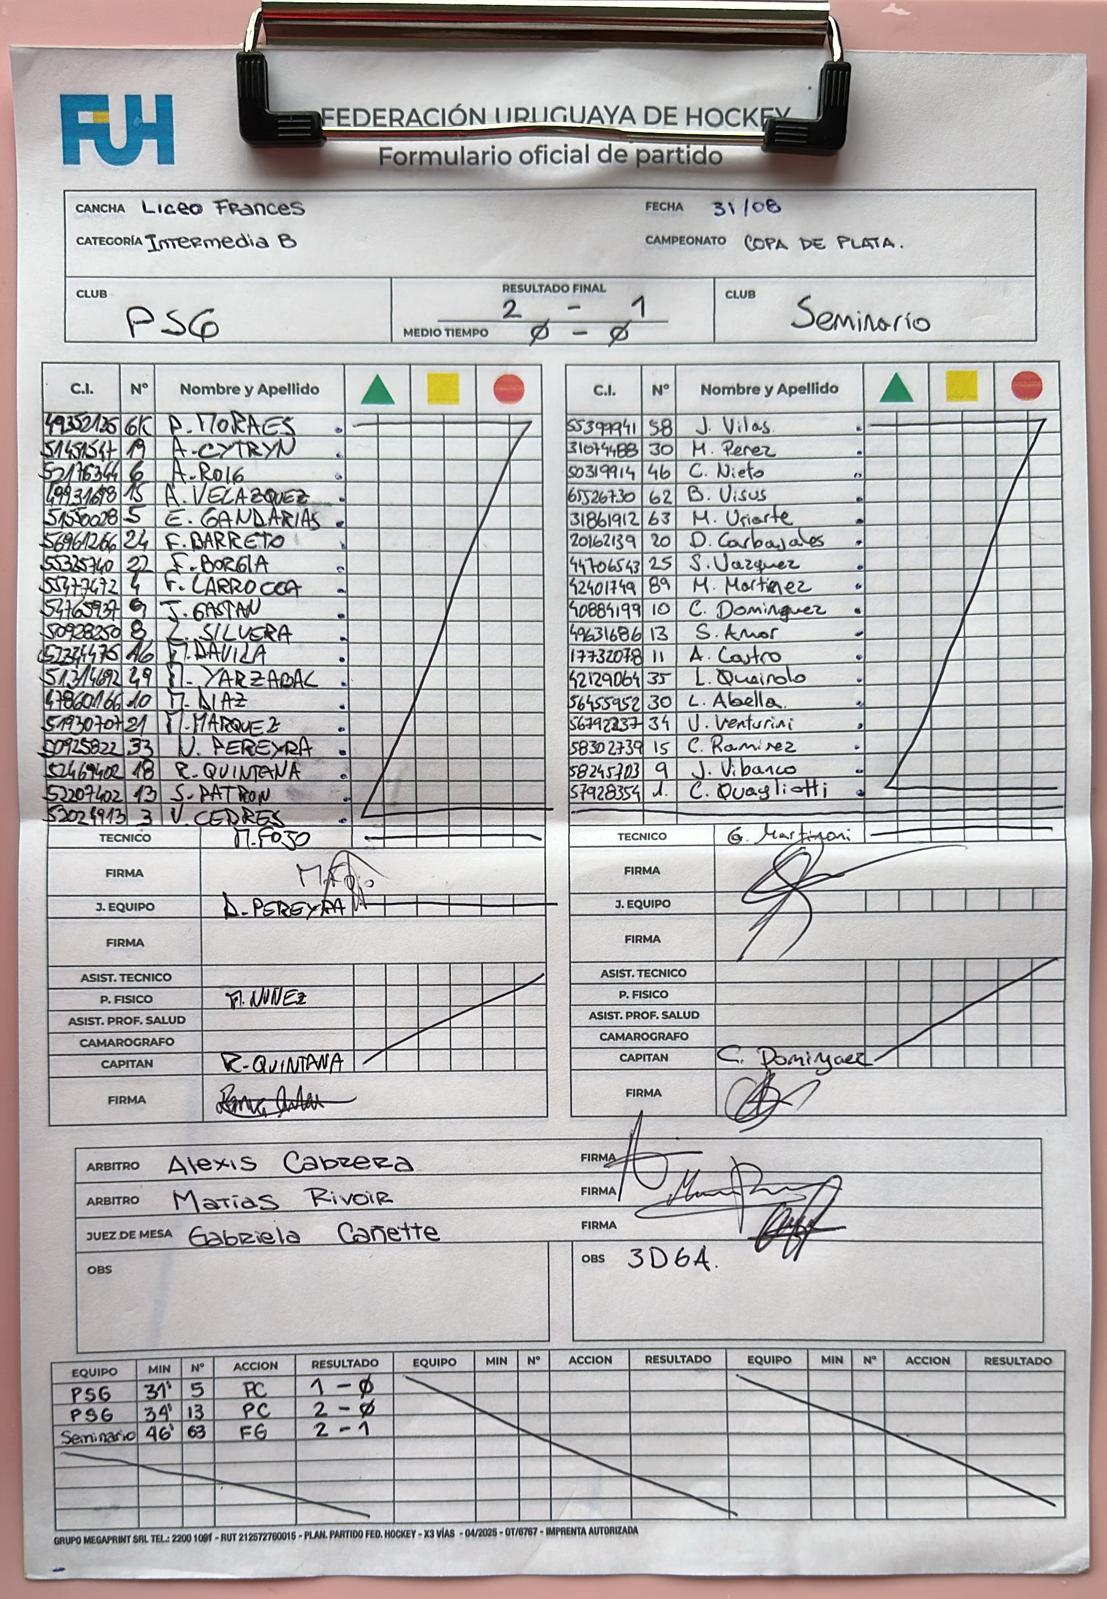 FUH
FEDERACIÓN URUGUAYA DE HOCKEY
Formulario oficial de partido
CANCHA Liceo Frances FECHA 31/08
CATEGORÍA Intermedia B CAMPEONATO COPA DE PLATA.
CLUB PSG RESULTADO FINAL 2 - 1 CLUB Seminario
MEDIO TIEMPO Ø - Ø
C.I. Nº Nombre y Apellido
P. MORAES
51451547 19 A. CYTRYN
52176344 6 A. ROIG
15 A. VELAZQUEZ
5 E. GANDARIAS
56961266 24 F. BARRETO
55325740 22 F. BORGIA
55477472 4 F. LARROCCA
54765937 9 J. GASTAN
50928250 8 L. SILVERA
52334475 16 M. DAVILA
51314692 29 M. YARZABAL
47860166 10 M. DIAZ
51930707 21 M. MARQUEZ
50925822 33 N. PEREYRA
52469402 18 R. QUINTANA
52207402 13 S. PATRON
52024913 3 V. CEDRES
TECNICO M. FOJO
FIRMA
J. EQUIPO D. PEREYRA
FIRMA
ASIST. TECNICO
P. FISICO M. NUÑEZ
ASIST. PROF. SALUD
CAMAROGRAFO
CAPITAN R. QUINTANA
FIRMA
C.I. Nº Nombre y Apellido
55399941 58 J. Vilas
31074488 30 M. Perez
50319914 46 C. Nieto
65526730 62 B. Visus
31861912 63 M. Uriarte
20162139 20 D. Carbajales
44706543 25 S. Vazquez
42401749 89 M. Martinez
40884199 10 C. Dominguez
49631686 13 S. Amor
17732078 11 A. Castro
42129064 35 L. Queirolo
56455952 30 L. Abella
56792237 34 V. Venturini
58302739 15 C. Ramirez
58245703 9 J. Vibanco
57928354 1. C. Quagliotti
TECNICO G. Martinoni
FIRMA
J. EQUIPO
FIRMA
ASIST. TECNICO
P. FISICO
ASIST. PROF. SALUD
CAMAROGRAFO
CAPITAN C. Dominguez
FIRMA
ARBITRO Alexis Cabrera FIRMA
ARBITRO Matias Rivoir FIRMA
JUEZ DE MESA Gabriela Cañette FIRMA
OBS
OBS 3DGA.
EQUIPO MIN Nº ACCION RESULTADO EQUIPO MIN Nº ACCION RESULTADO EQUIPO MIN Nº ACCION RESULTADO
PSG 31' 5 PC 1 - Ø
PSG 34' 13 PC 2 - Ø
Seminario 46' 63 FG 2 - 1
GRUPO MEGAPRINT SRL TEL.: 2200 1091 - RUT 212572760015 - PLAN. PARTIDO FED. HOCKEY - X3 VÍAS - 04/2025 - OT/6767 - IMPRENTA AUTORIZADA